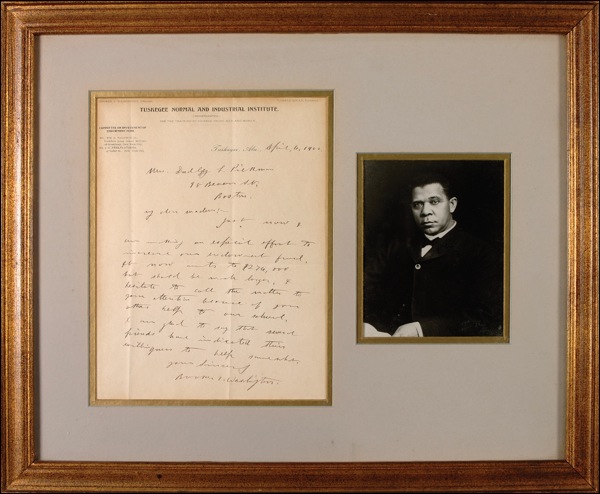 TUSKEGEE NORMAL AND INDUSTRIAL INSTITUTE.
COMMITTEE ON INVESTMENT OF
ENDOWMENT FUND
Tuskegee, Ala., April, 11,
Mrs. Dudley L Pickman
98 Beacon St,
Boston.
My dear madam:
Just now I
am making an especial effort to
increase our endowment fund.
It now amts to
but should be much larger. I
hesitate to call the matter to
your attention because of your
other help to our school.
I am glad to say that most
friends have indicated their
willingness to help
Yours Sincerely
Booker T. Washington.